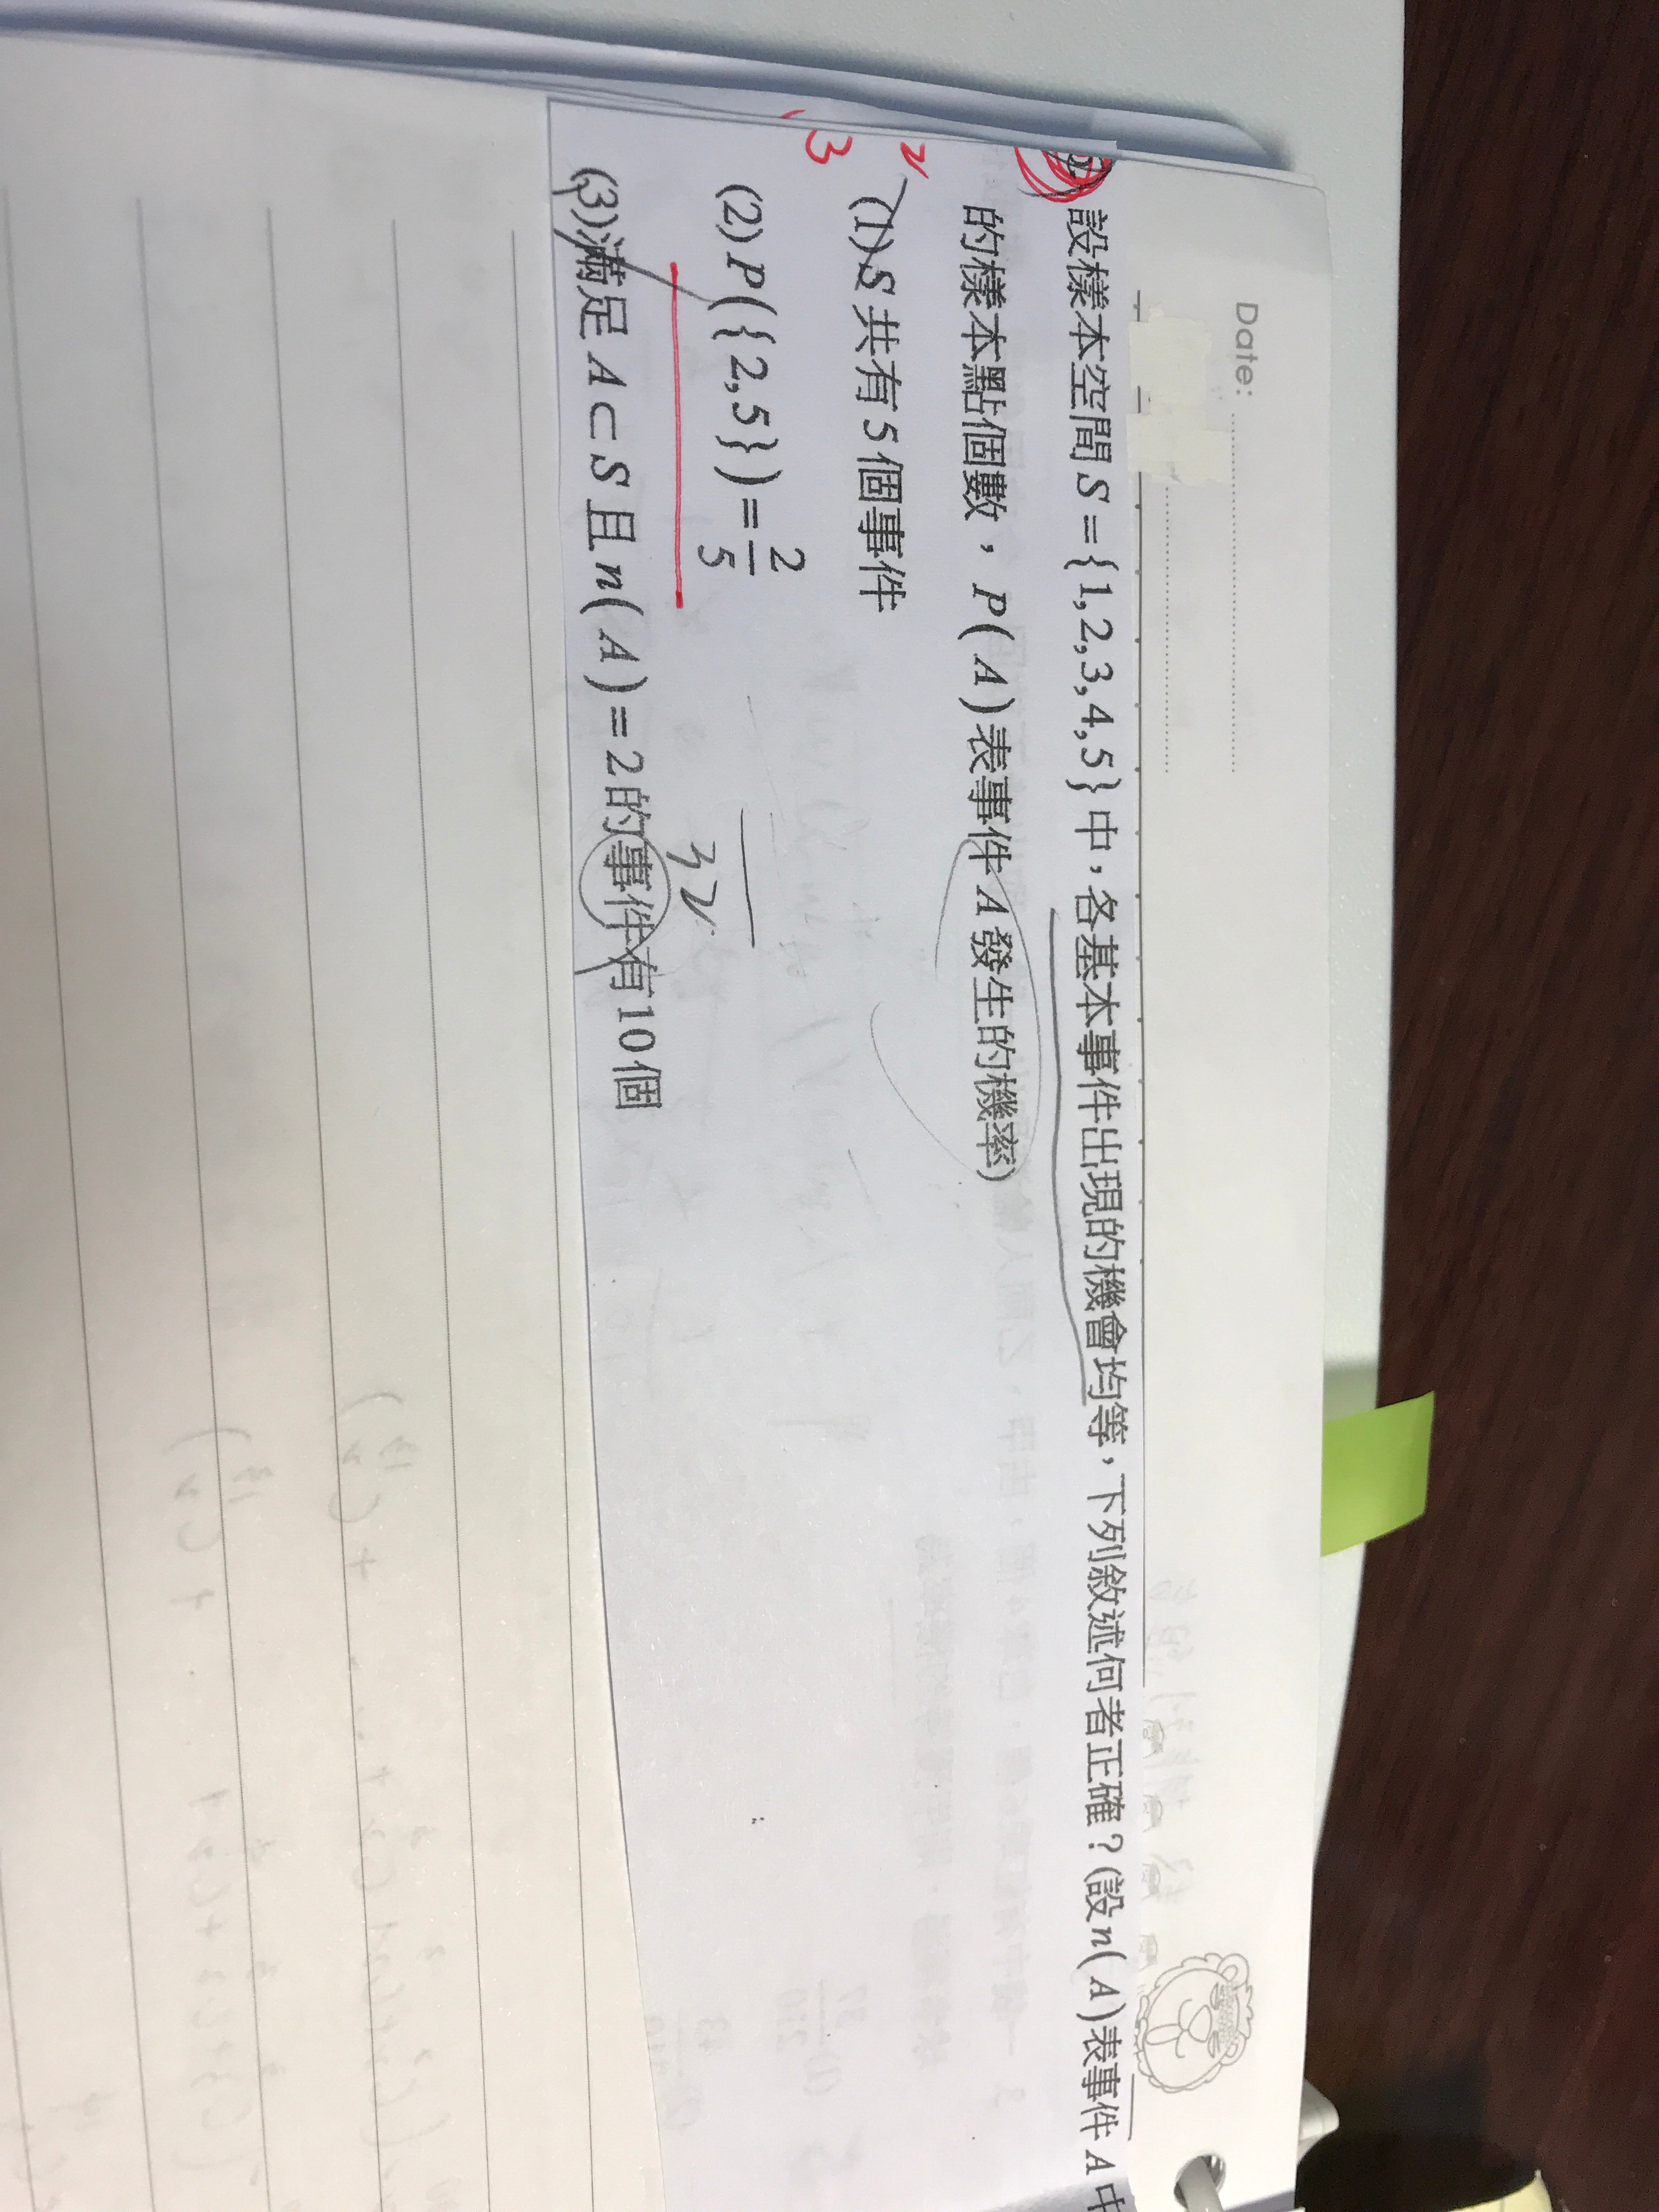 Date:
設樣本空間 S={1,2,3,4,5}中,各基本事件出現的機會均等,下列敘述何者正確?(設n(A)表事件A中
的樣本點個數,P(A)表事件A發生的機率)
2
(1)S共有5個事件
3
(2)P({2,5})=2/5
32
(3)滿足A⊂S且n(A)=2的事件有10個